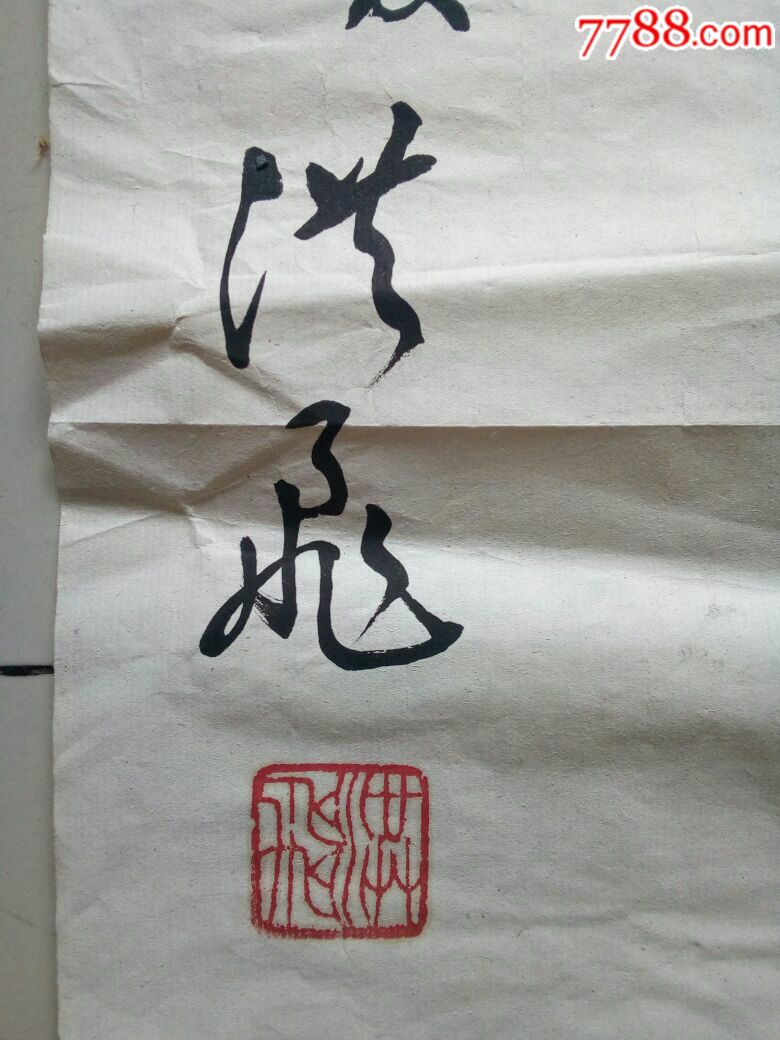 7788.com
洪
飛